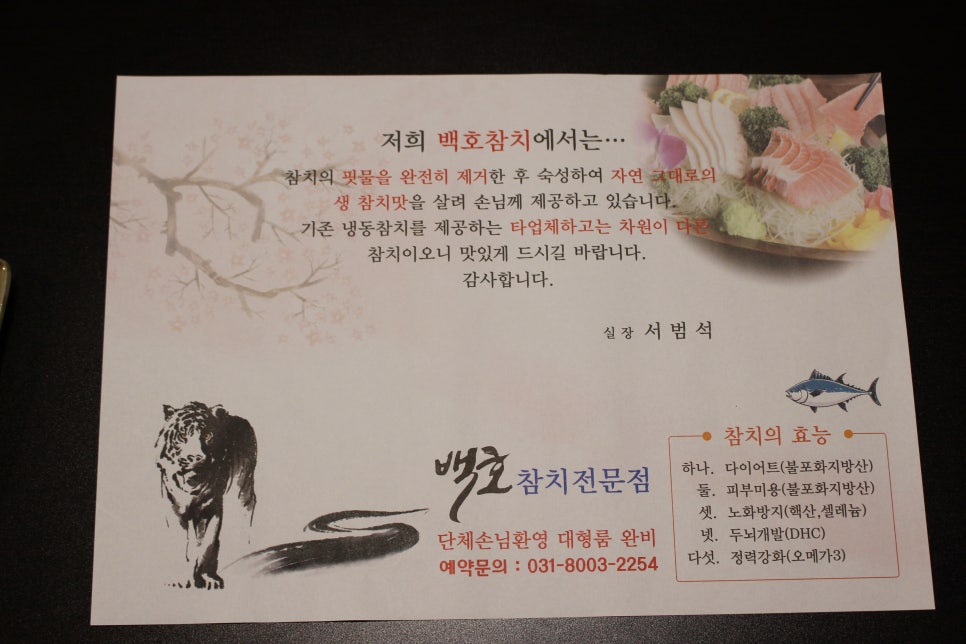 저희 백호참치에서는…
참치의 핏물을 완전히 제거한 후 숙성하여 자연 그대로의
생 참치맛을 살려 손님께 제공하고 있습니다.
기존 냉동참치를 제공하는 타업체하고는 차원이 다른
참치이오니 맛있게 드시길 바랍니다.
감사합니다.
실장 서범석
백호 참치전문점
단체손님환영 대형룸 완비
예약문의 : 031-8003-2254
참치의 효능
하나. 다이어트(불포화지방산)
둘. 피부미용(불포화지방산)
셋. 노화방지(핵산,셀레늄)
넷. 두뇌개발(DHC)
다섯. 정력강화(오메가3)